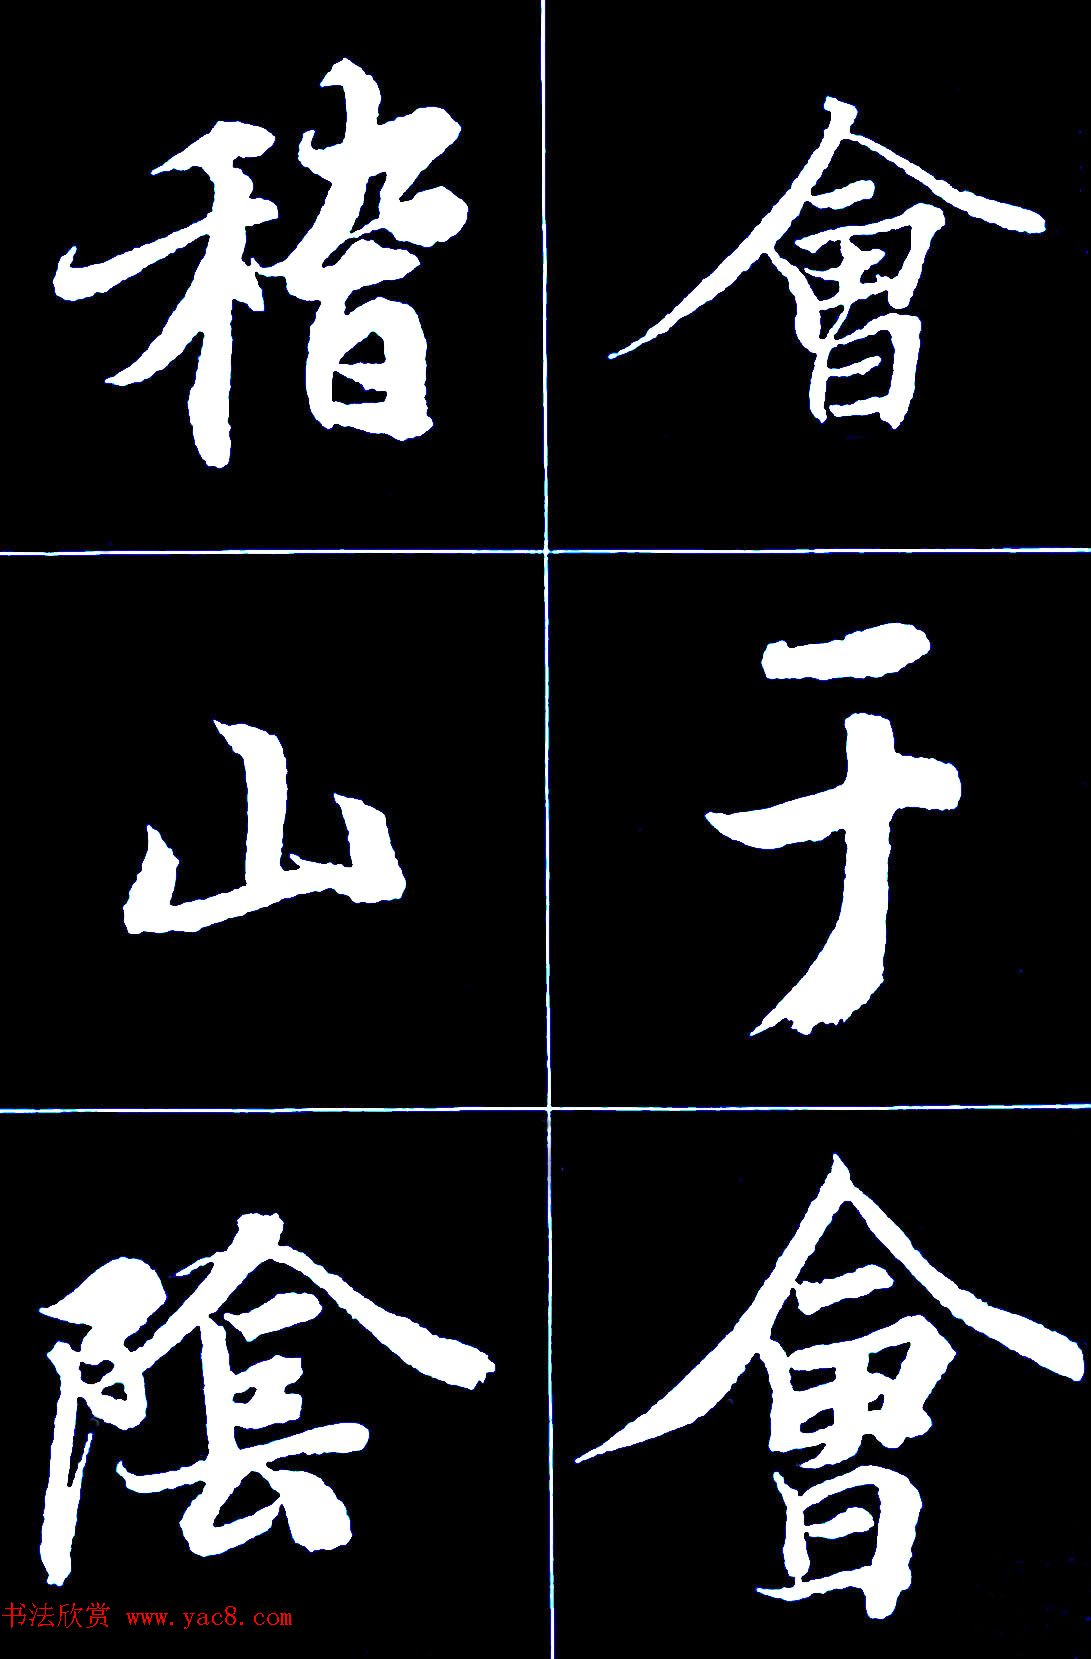 會于會
稽山陰
书法欣赏 www.yac8.com